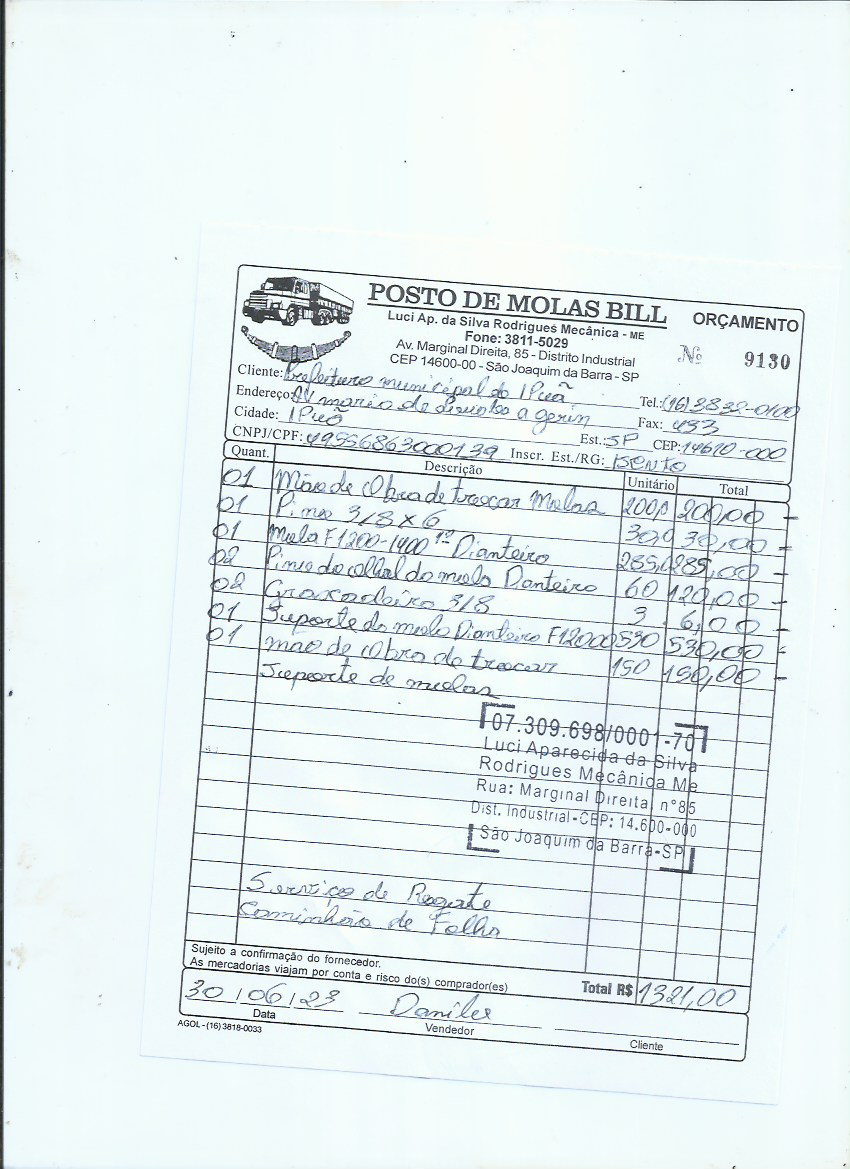 POSTO DE MOLAS BILL
ORÇAMENTO
Luci Ap. da Silva Rodrigues Mecânica - ME
Fone: 3811-5029
Av. Marginal Direita, 85 - Distrito Industrial
CEP 14600-00 - São Joaquim da Barra - SP
Nº 9130
Cliente: Prefeitura municipal de IPuã
Endereço: AV maria de a gerin Tel.: (16) 3832-0100
Cidade: IPuã Est.: SP Fax: 433
CNPJ/CPF: 49956863000139 Inscr. Est./RG: ISENTO CEP: 14610-000
Quant. Descrição Unitário Total
01 Mão de Obra de trocar Molas 200,0 200,00
01 Pino 3/8 x 6 30,0 30,00
01 Mola F1200-1400 1º Dianteiro 285,0 285,00
02 Pino do olhal da mola Danteiro 60 120,00
02 Graxadeiro 3/8 3 6,00
01 Suporte da mola Dianteiro F12000 530 530,00
01 mão de Obra de trocar 150 150,00
Suporte de molas
07.309.698/0001-70
Luci Aparecida da Silva
Rodrigues Mecânica Me
Rua: Marginal Direita, n°85
Dist. Industrial-CEP: 14.600-000
São Joaquim da Barra-SP
Serviço de Resgate
Caminhão de Folha
Sujeito a confirmação do fornecedor.
As mercadorias viajam por conta e risco do(s) comprador(es)
Total R$ 1321,00
30/06/23
Data Vendedor Cliente
AGOL - (16) 3818-0033